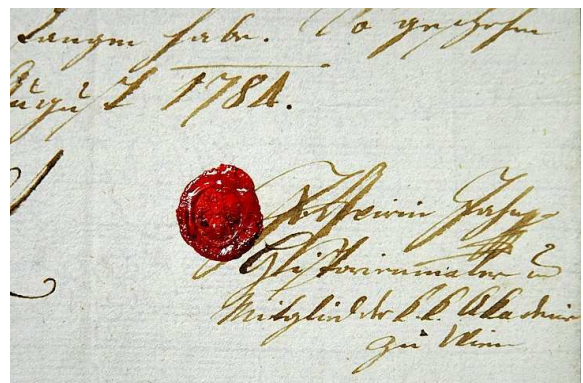 langen habe. So geschehen
August 1784.
Historienmaler u
Mitglied der k. k. Akademie
zu Wien